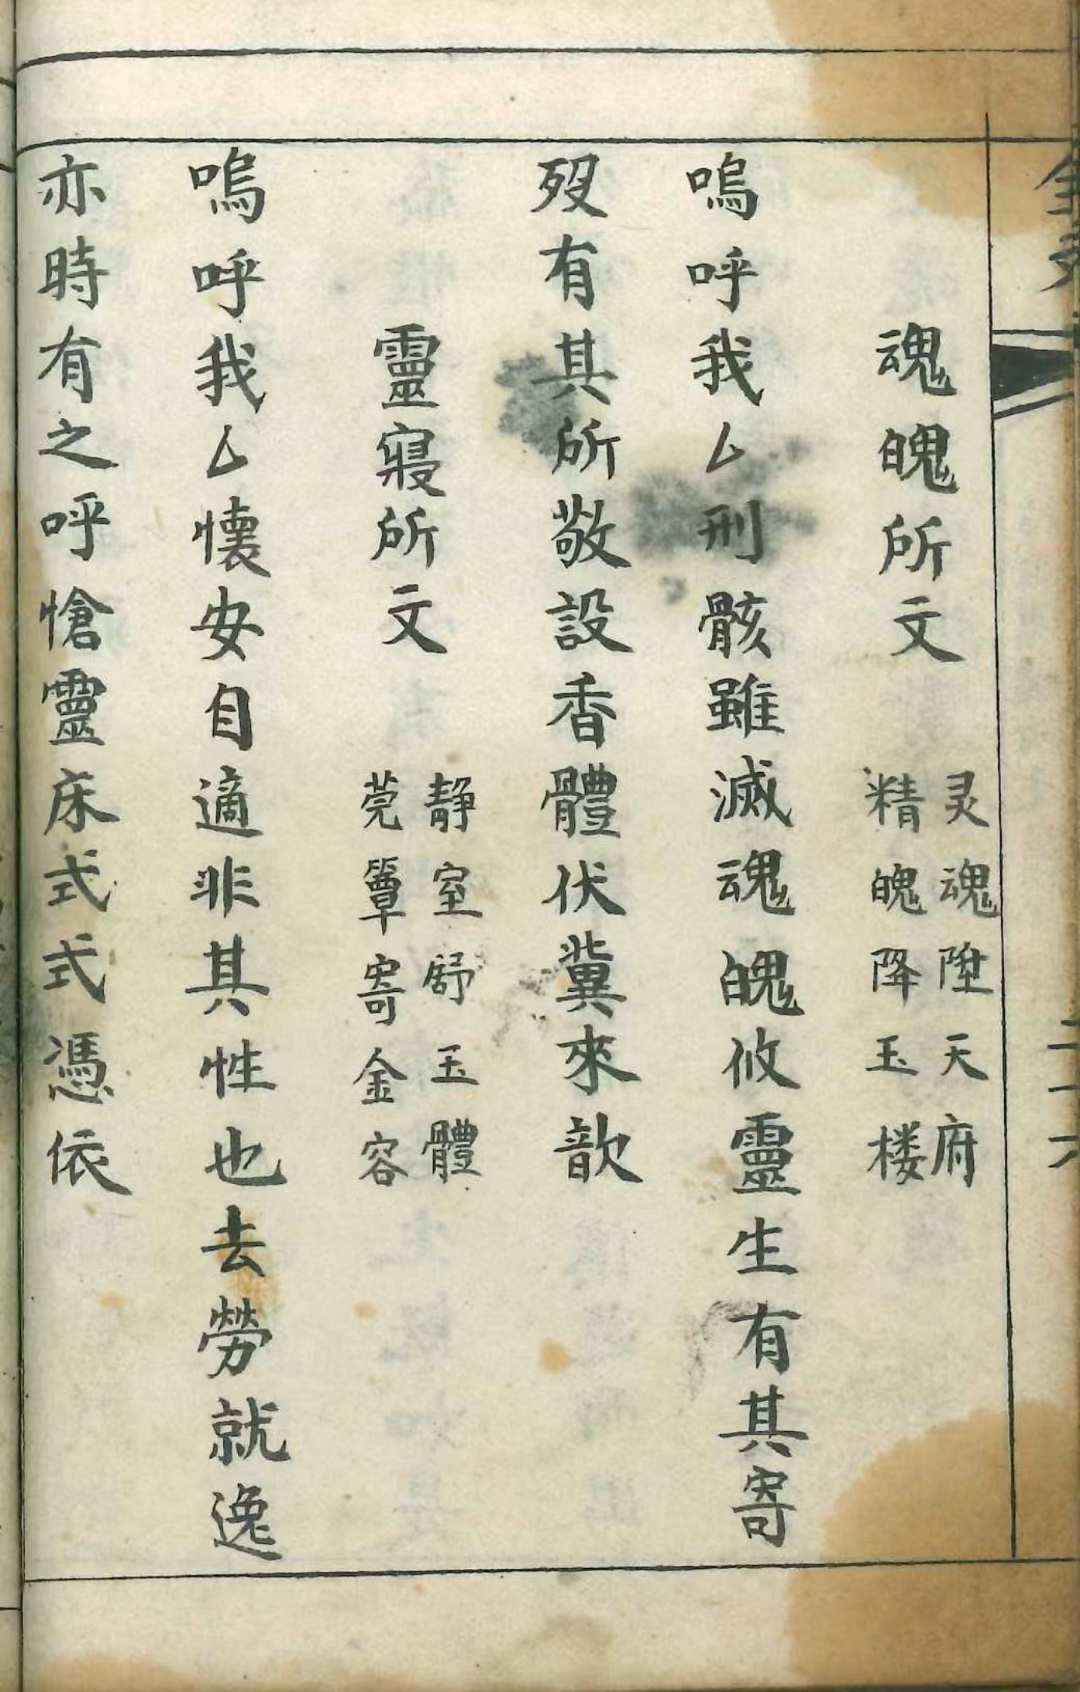 魂魄所文
灵魂陞天府
精魄降玉楼
嗚呼我厶刑骸雖滅魂魄攸靈生有其寄
歿有其所敬設香體伏冀來歆
靈寢所文
静室舒玉體
莞簟寄金容
嗚呼我厶懐安自適非其性也去勞就逸
亦時有之呼愴靈床式式憑依